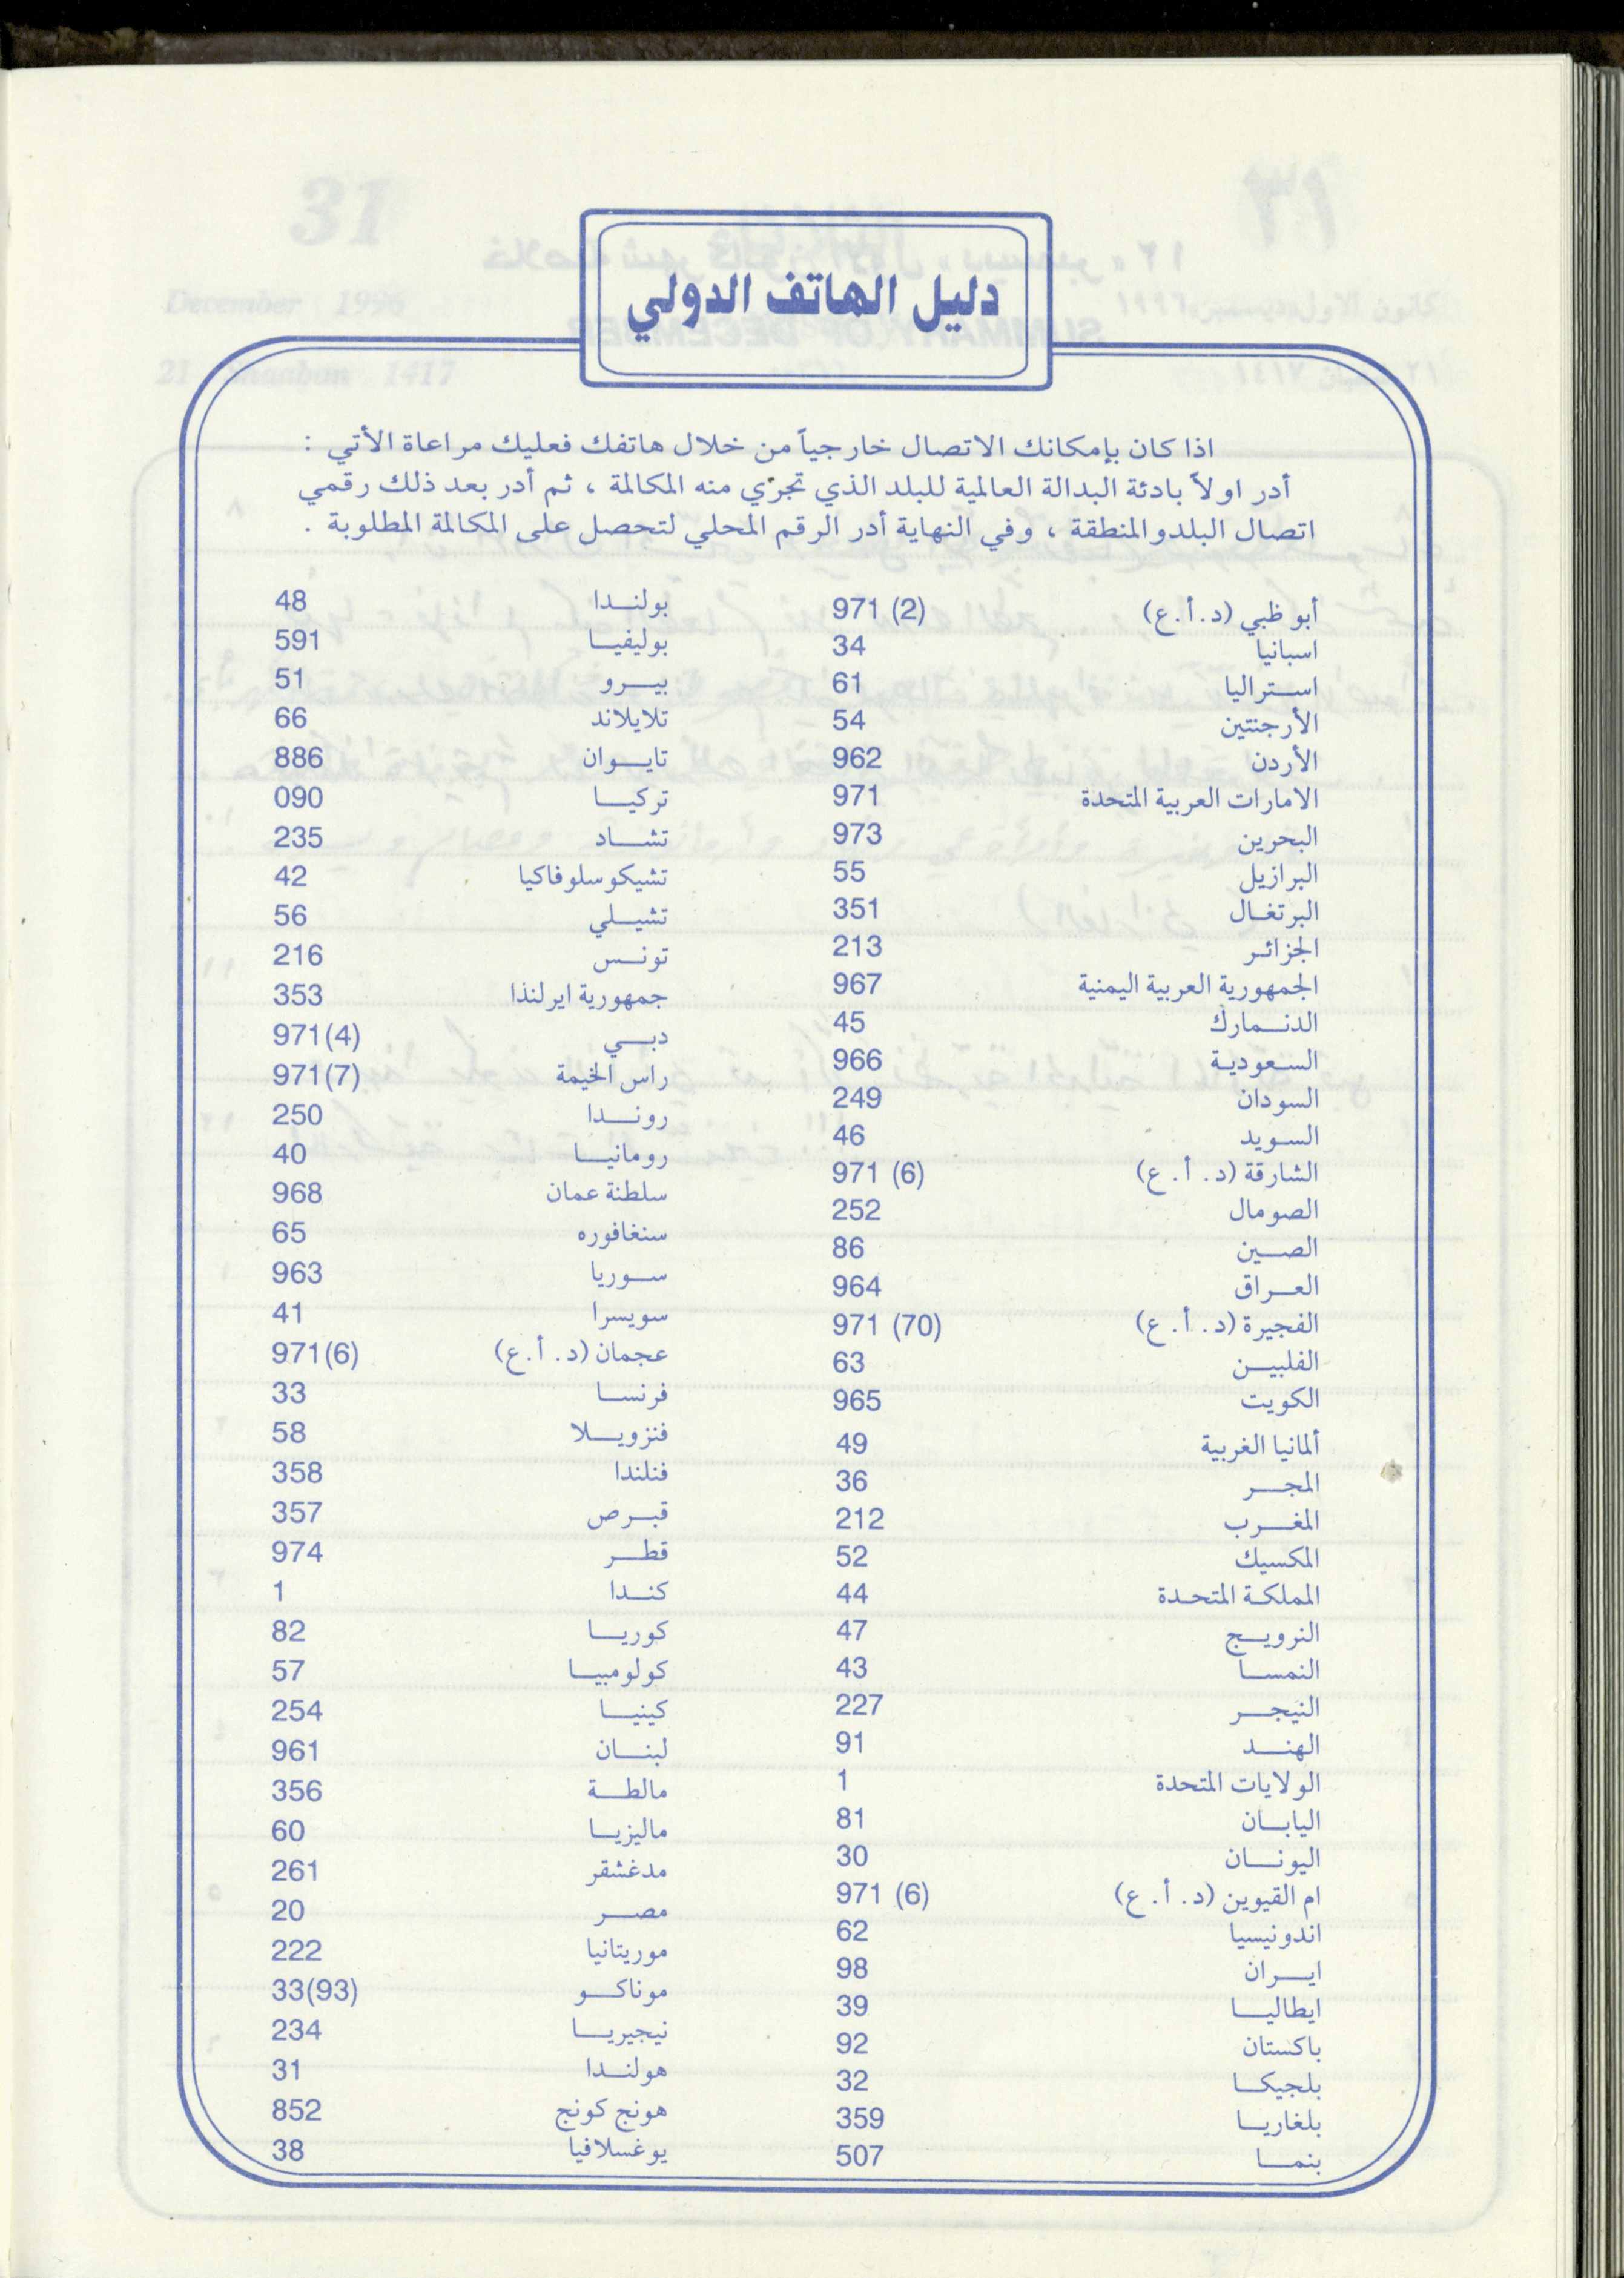 دليل الهاتف الدولي
اذا كان بإمكانك الاتصال خارجياً من خلال هاتفك فعليك مراعاة الأتي :
أدر اولاً بادئة البدالة العالمية للبلد الذي تجري منه المكالمة ، ثم أدر بعد ذلك رقمي
اتصال البلد والمنطقة ، وفي النهاية أدر الرقم المحلي لتحصل على المكالمة المطلوبة .
أبو ظبي (د.أ.ع) 971 (2)
اسبانيا 34
استراليا 61
الأرجنتين 54
الأردن 962
الامارات العربية المتحدة 971
البحرين 973
البرازيل 55
البرتغال 351
الجزائر 213
الجمهورية العربية اليمنية 967
الدنمارك 45
السعودية 966
السودان 249
السويد 46
الشارقة (د. أ. ع) 971 (6)
الصومال 252
الصين 86
العراق 964
الفجيرة (د. أ. ع) 971 (70)
الفلبين 63
الكويت 965
ألمانيا الغربية 49
المجر 36
المغرب 212
المكسيك 52
المملكة المتحدة 44
النرويج 47
النمسا 43
النيجر 227
الهند 91
الولايات المتحدة 1
اليابان 81
اليونان 30
ام القيوين (د. أ. ع) 971 (6)
اندونيسيا 62
ايران 98
ايطاليا 39
باكستان 92
بلجيكا 32
بلغاريا 359
بنما 507
بولندا 48
بوليفيا 591
بيرو 51
تلايلاند 66
تايوان 886
تركيا 090
تشاد 235
تشيكوسلوفاكيا 42
تشيلي 56
تونس 216
جمهورية ايرلنذا 353
دبي 971(4)
راس الخيمة 971(7)
روندا 250
رومانيا 40
سلطنة عمان 968
سنغافوره 65
سوريا 963
سويسرا 41
عجمان (د. أ.ع) 971(6)
فرنسا 33
فنزويلا 58
فنلندا 358
قبرص 357
قطر 974
كندا 1
كوريا 82
كولومبيا 57
كينيا 254
لبنان 961
مالطة 356
ماليزيا 60
مدغشقر 261
مصر 20
موريتانيا 222
موناكو 33(93)
نيجيريا 234
هولندا 31
هونج كونج 852
يوغسلافيا 38